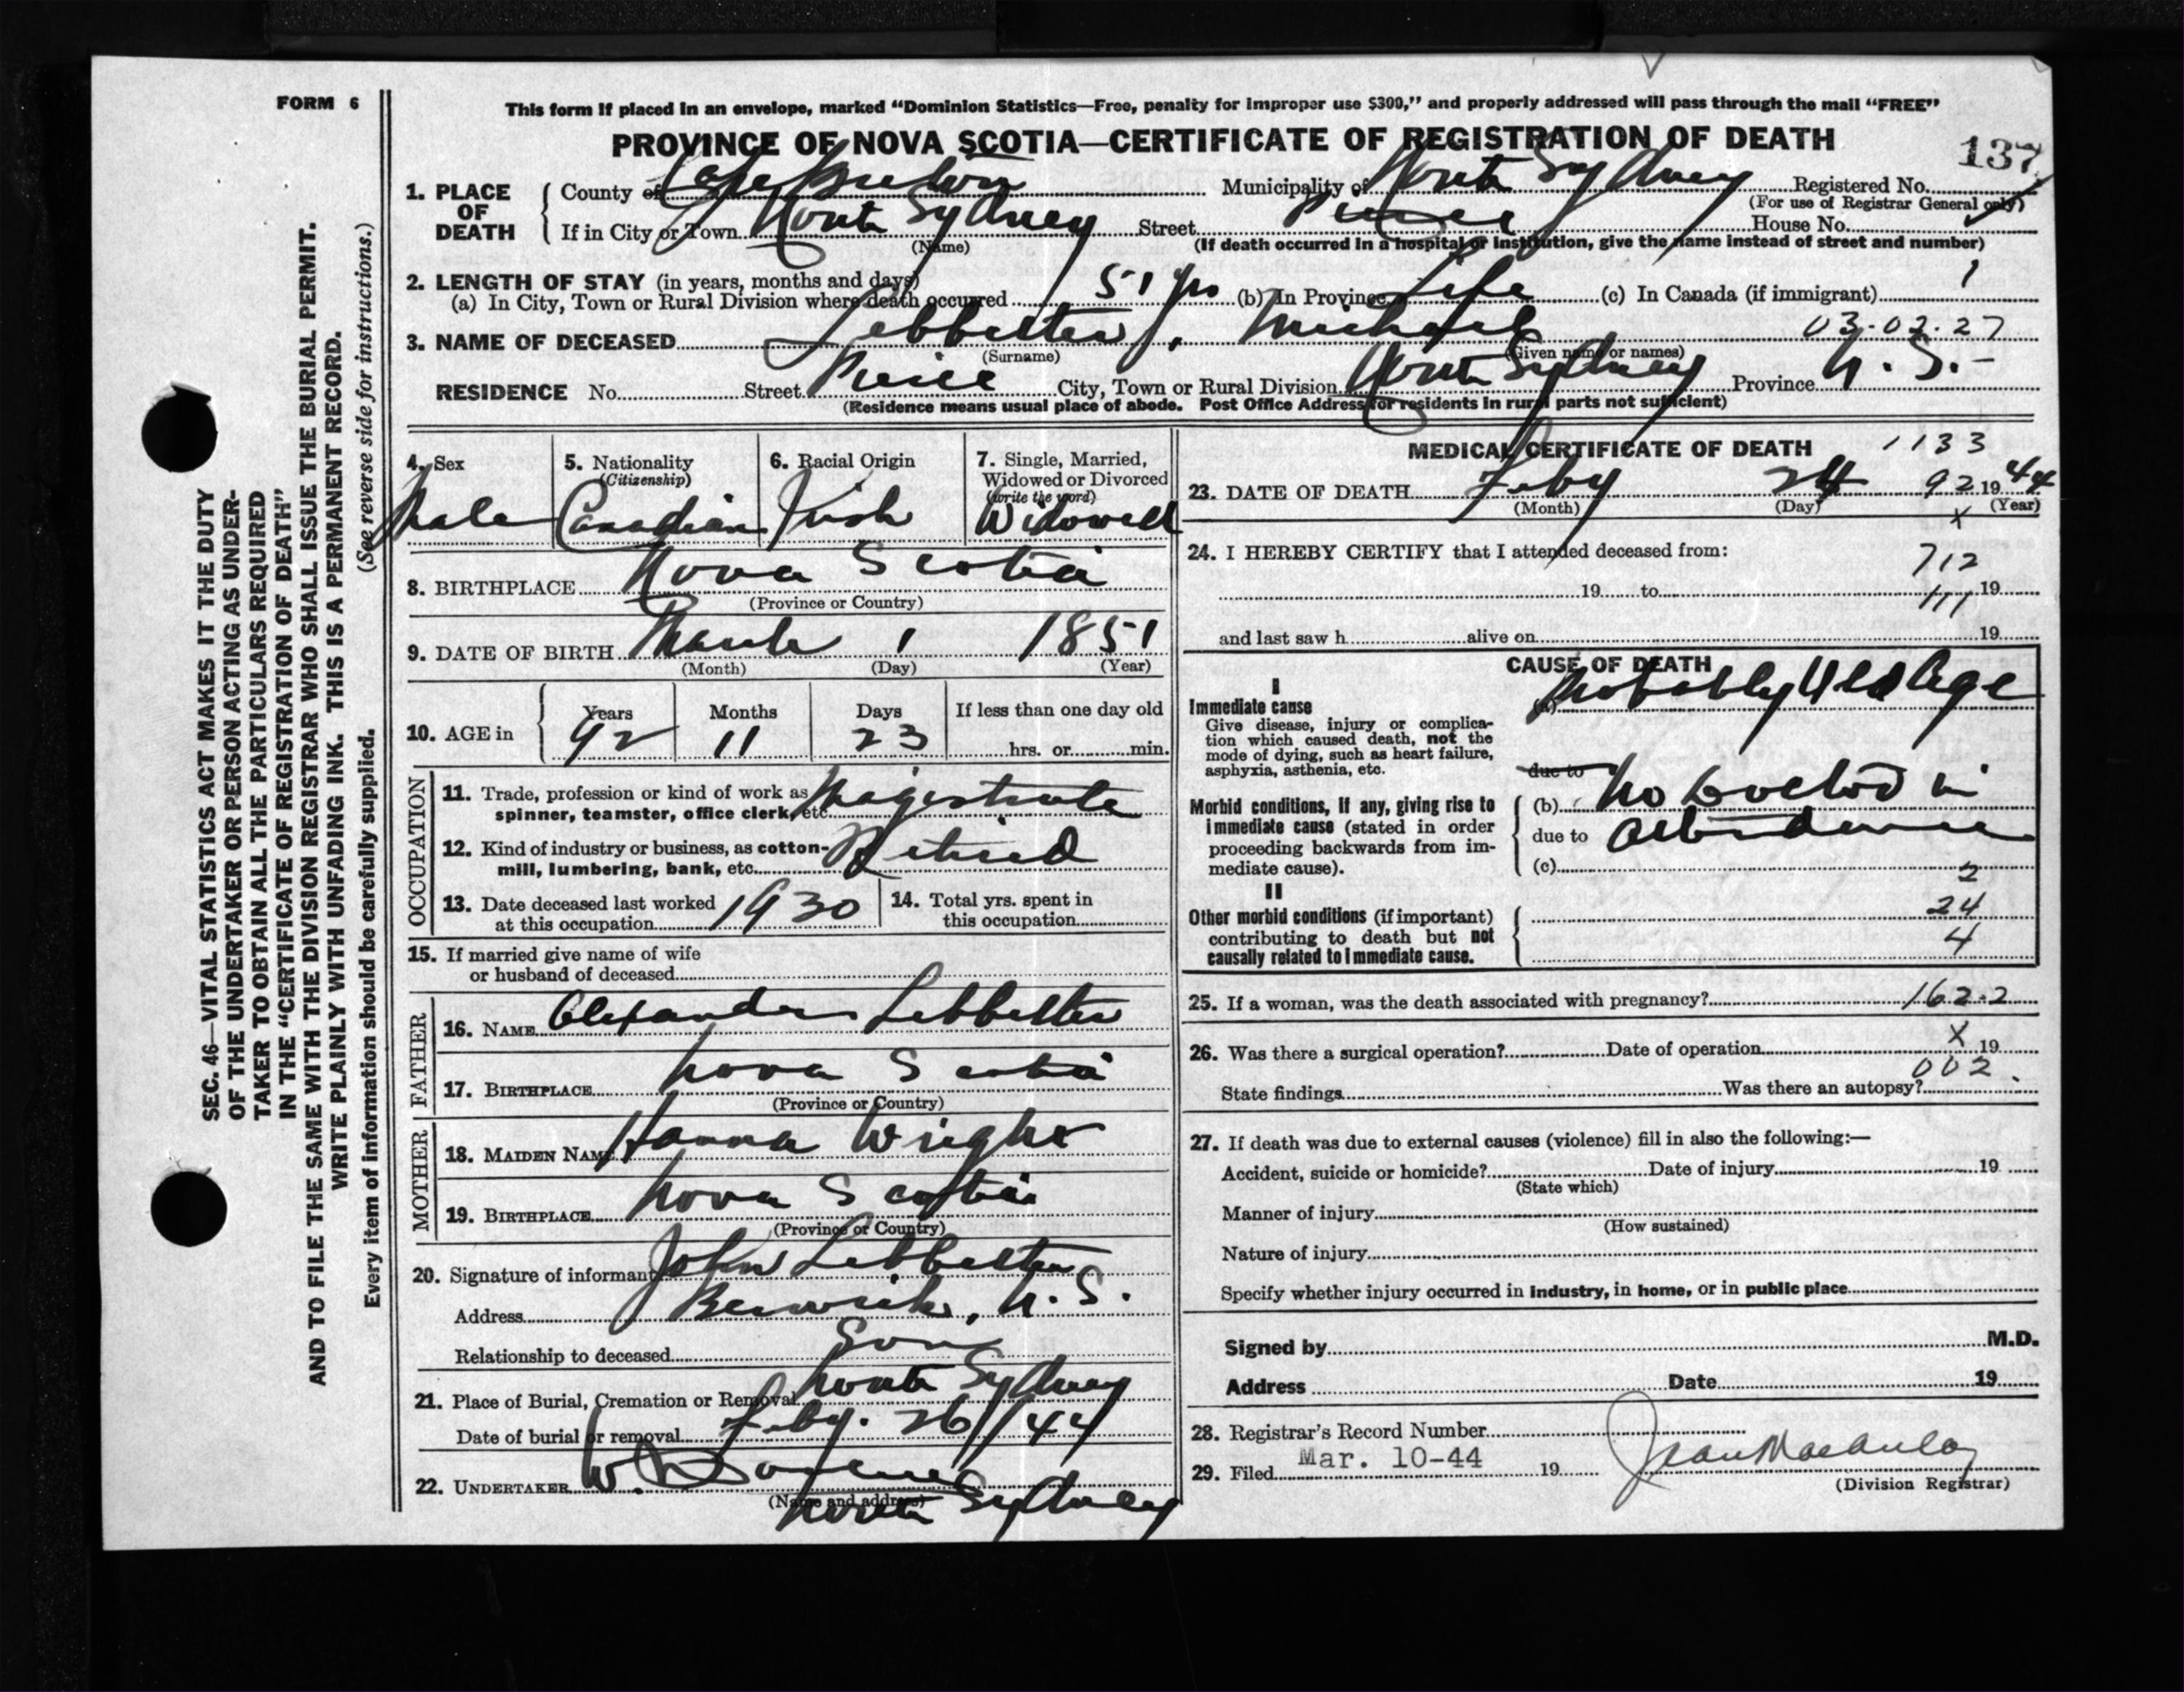 FORM 6
This form if placed in an envelope, marked “Dominion Statistics—Free, penalty for improper use $300,” and properly addressed will pass through the mail “FREE”
PROVINCE OF NOVA SCOTIA—CERTIFICATE OF REGISTRATION OF DEATH
137
1. PLACE OF DEATH
County of Cape Breton Municipality of North Sydney Registered No.
(For use of Registrar General only)
If in City or Town North Sydney Street Pierce House No.
(Name) (If death occurred in a hospital or institution, give the name instead of street and number)
2. LENGTH OF STAY (in years, months and days)
(a) In City, Town or Rural Division where death occurred 51 yrs (b) In Province Life (c) In Canada (if immigrant) 1
3. NAME OF DECEASED Lebbetter, Michael 03-02-27
(Surname) (Given name or names)
RESIDENCE No. Street Pierce City, Town or Rural Division North Sydney Province N. S.-
(Residence means usual place of abode. Post Office Address for residents in rural parts not sufficient)
4. Sex Male
5. Nationality (Citizenship) Canadian
6. Racial Origin Irish
7. Single, Married, Widowed or Divorced (write the word) Widowed
8. BIRTHPLACE Nova Scotia
(Province or Country)
9. DATE OF BIRTH March 1 1851
(Month) (Day) (Year)
10. AGE in Years Months Days If less than one day old
92 11 23 hrs. or min.
OCCUPATION
11. Trade, profession or kind of work as spinner, teamster, office clerk, etc. Magistrate
12. Kind of industry or business, as cotton-mill, lumbering, bank, etc. Retired
13. Date deceased last worked at this occupation 1930
14. Total yrs. spent in this occupation
15. If married give name of wife or husband of deceased
FATHER
16. NAME Alexander Lebbetter
17. BIRTHPLACE Nova Scotia
(Province or Country)
MOTHER
18. MAIDEN NAME Hanna Wright
19. BIRTHPLACE Nova Scotia
(Province or Country)
20. Signature of informant John Lebbetter
Address Berwick, N. S.
Relationship to deceased Son
21. Place of Burial, Cremation or Removal North Sydney
Date of burial or removal Feby. 26/44
22. UNDERTAKER W.
(Name and address)
North Sydney
MEDICAL CERTIFICATE OF DEATH 1133
23. DATE OF DEATH Feby 24 92 1944
(Month) (Day) (Year)
X
24. I HEREBY CERTIFY that I attended deceased from:
712
19 to 19
111
and last saw h alive on 19
CAUSE OF DEATH
I
Immediate cause
Give disease, injury or complication which caused death, not the mode of dying, such as heart failure, asphyxia, asthenia, etc.
(a) Probably Old Age
due to
Morbid conditions, if any, giving rise to immediate cause (stated in order proceeding backwards from immediate cause).
(b) No Doctor in
due to attendance
(c)
2
II
Other morbid conditions (if important) contributing to death but not causally related to immediate cause.
24
4
25. If a woman, was the death associated with pregnancy? 162-2
26. Was there a surgical operation? Date of operation X 19
002
State findings Was there an autopsy?
27. If death was due to external causes (violence) fill in also the following:—
Accident, suicide or homicide? Date of injury 19
(State which)
Manner of injury
(How sustained)
Nature of injury
Specify whether injury occurred in industry, in home, or in public place
Signed by M.D.
Address Date 19
28. Registrar's Record Number
29. Filed Mar. 10-44 19 Jean Macaulay
(Division Registrar)
SEC. 46—VITAL STATISTICS ACT MAKES IT THE DUTY
OF THE UNDERTAKER OR PERSON ACTING AS UNDER-
TAKER TO OBTAIN ALL THE PARTICULARS REQUIRED
IN THE “CERTIFICATE OF REGISTRATION OF DEATH”
AND TO FILE THE SAME WITH THE DIVISION REGISTRAR WHO SHALL ISSUE THE BURIAL PERMIT.
WRITE PLAINLY WITH UNFADING INK. THIS IS A PERMANENT RECORD.
Every item of information should be carefully supplied. (See reverse side for instructions.)